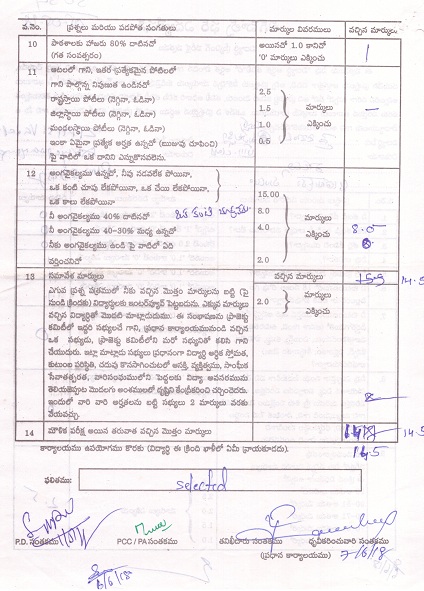 వ.నెం. ప్రశ్నలు మరియు పదపోత సంగతులు మార్కుల వివరములు వచ్చిన మార్కులు.
10 పాఠశాలకు హాజరు 80% దాటినచో అయినచో 1.0 కానిచో 1
(గత సంవత్సరం) '0' మార్కులు ఎక్కించు
11 ఆటలలో గాని, ఇతర ప్రత్యేకమైన పోటీలలో
గాని పాల్గొన్న నిపుణత ఉండినచో
రాష్ట్రస్థాయి పోటీలు (నెగ్గినా, ఓడినా) 2.5
జిల్లాస్థాయి పోటీలు (నెగ్గినా, ఓడినా) 1.5 మార్కులు –
మండలస్థాయి పోటీలు (నెగ్గినా, ఓడినా) 1.0 ఎక్కించు
ఇంకా ఏమైనా ప్రత్యేక అర్హత ఉన్నచో (ఋజువు చూపించి) 0.5
పై వాటిలో ఒక దానిని ఎన్నుకొనవలెను.
12 అంగవైకల్యము ఉన్నచో, నీవు నడవలేక పోయినా,
ఒక కంటి చూపు లేకపోయినా, ఒక చేయి లేకపోయినా, 15.00
ఒక కాలు లేకపోయినా
నీ అంగవైకల్యము 40% దాటినచో 8.0 మార్కులు
నీ అంగవైకల్యము 40-30% మధ్య ఉన్నచో 4.0 ఎక్కించు 8.0
నీకు అంగవైకల్యము ఉండి పై వారిలో ఏది
వర్తించనిచో 2.0
13 సమావేశ మార్కులు వచ్చిన మార్కులు 14.5
ఎగువ ప్రశ్న పత్రములో నీకు వచ్చిన మొత్తం మార్కులను బట్టి (పై
నుండి క్రిందకు) విద్యార్థులకు ఇంటర్వ్యూకో పెట్టబడును. ఎక్కువ మార్కులు 2.0 మార్కులు
వచ్చిన విద్యార్థితో మొదటి మాట్లాడుదుము. ఈ సంభాషణను ప్రాజెక్టు ఎక్కించు
కమిటీలో ఇద్దరి సభ్యులచే గాని, ప్రధాన కార్యాలయమునుండి వచ్చిన
ఒక సభ్యుడు, ప్రాజెక్టు కమిటీలోని మరో సభ్యునితో కలిసి గాని
చేయుదురు. ఇట్లా మాట్లాడు సభ్యులు ప్రధానంగా విద్యార్థి ఆర్థిక స్తోమత,
కుటుంబ పరిస్థితి, చదువు కొనసాగించుటలో ఆసక్తి, వ్యక్తిత్వము, సాంఘిక
సేవాతత్పరత, వారిసంఘములోని పెద్దలకు విద్యా అవసరమును
తెలియజెప్పుట మొదలగు అంశములలో దృష్టిని కేంద్రీకరించి చర్చించెదరు.
ఇందులో వారి వారి అర్హతలను బట్టి సభ్యులు 2 మార్కులు వరకు
వేయవచ్చు.
14 మౌళిక పరీక్ష అయిన తరువాత వచ్చిన మొత్తం మార్కులు 14.5
కార్యాలయము ఉపయోగము కొరకు (విద్యార్థి ఈ క్రింది ఖాళీలో ఏమీ వ్రాయకూడదు). 14.5
ఫలితము: selected
P.D. సంతకము PCC / PA సంతకము తనిఖీదారు సంతకము ధృవీకరించువారి సంతకము
(ప్రధాన కార్యాలయము) 7/6/18
6/6/18